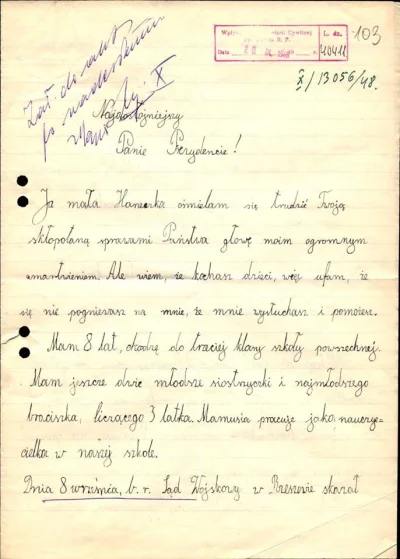 103
L. dz.
40411
X/13056/48.
Zał. do akt
Najdostojniejszy
Panie Prezydencie!
Ja mała Haneczka ośmielam się trudzić Twoją
skłopotaną sprawami Państwa głowę moim ogromnym
zmartwieniem. Ale wiem, że kochasz dzieci, więc ufam, że
się nie pogniewasz na mnie, że mnie wysłuchasz i pomożesz.
Mam 8 lat, chodzę do trzeciej klasy szkoły powszechnej.
Mam jeszcze dwie młodsze siostrzyczki i najmłodszego
braciszka, liczącego 3 latka. Mamusia pracuje jako nauczy-
cielka w naszej szkole.
Dnia 8 września, b. r. Sąd Wojskowy w Rzeszowie skazał